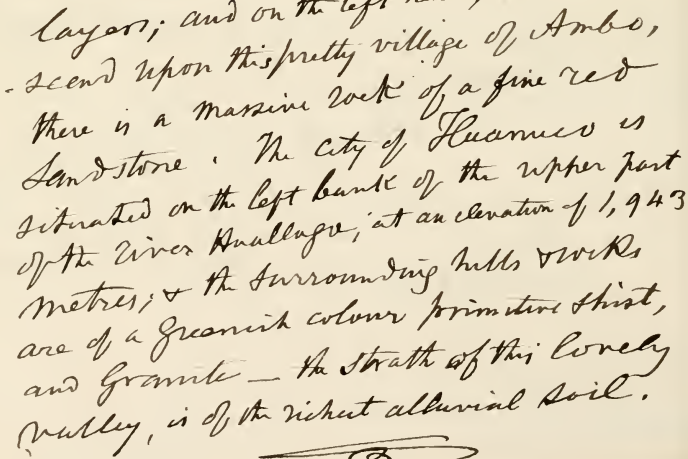 layers; and on the left
-scend upon this pretty village of Ambo,
there is a massive rock of a fine red
Sandstone. The city of Huanuco is
situated on the left bank of the upper part
of the River Huallaga, at an elevation of 1,943
metres; & the surrounding hills & rocks
are of a Greenish colour primitive shist,
and Granite — the strath of this lovely
valley, is of the richest alluvial soil.